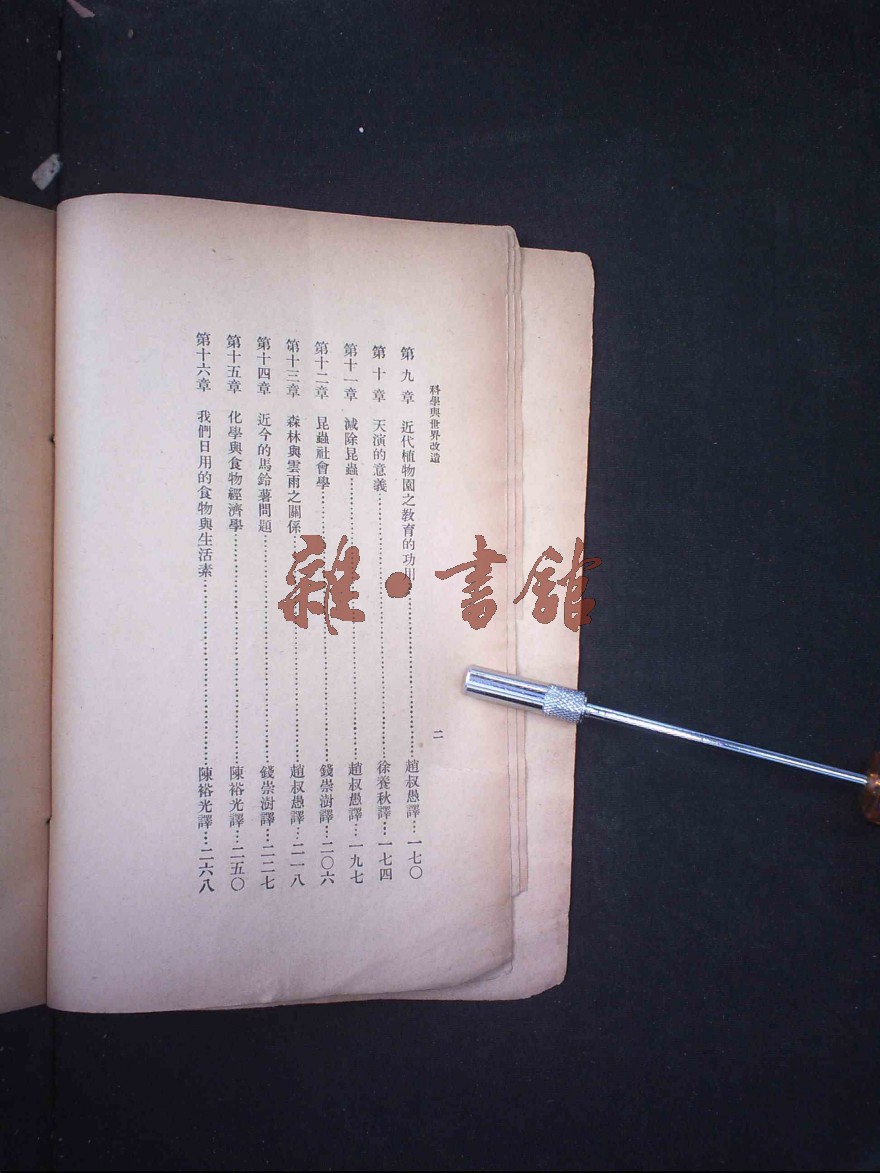 科學與世界改造
二
第九章 近代植物園之教育的功用……趙叔愚譯…一七〇
第十章 天演的意義……徐養秋譯…一七四
第十一章 減除昆蟲……趙叔愚譯…一九七
第十二章 昆蟲社會學……錢崇澍譯…二〇六
第十三章 森林與雲雨之關係……趙叔愚譯…二一八
第十四章 近今的馬鈴薯問題……錢崇澍譯…二二七
第十五章 化學與食物經濟學……陳裕光譯…二五〇
第十六章 我們日用的食物與生活素……陳裕光譯…二六八
雜·書館